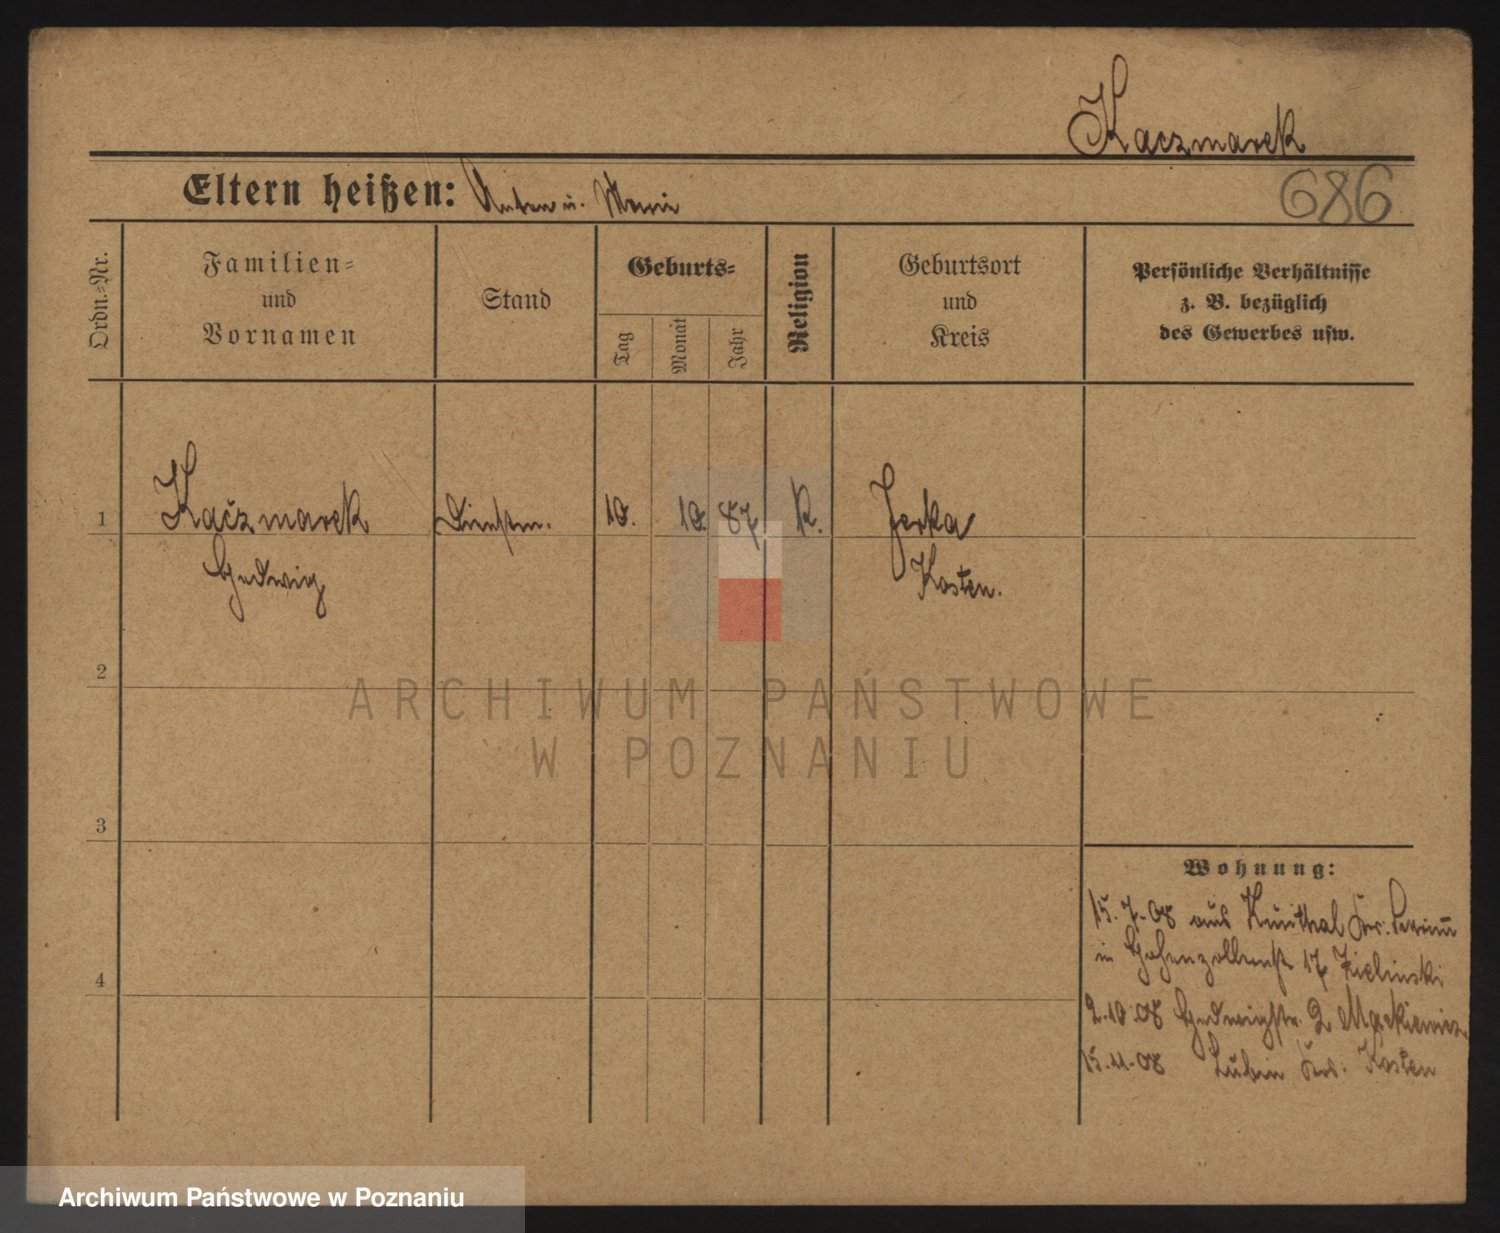 Kaczmarek
Eltern heißen: Anton u. Marie
686
Ordn.-Nr.
Familien-
und
Vornamen
Stand
Geburts-
Tag
Monat
Jahr
Religion
Geburtsort
und
Kreis
Persönliche Verhältnisse
z. B. bezüglich
des Gewerbes usw.
1 Kaczmarek Dienstm. 10. 10. 87 K. Jerka
Hedwig Kosten.
2
3
4
Wohnung:
15.7.08 aus Krs.
in Hohenzollernstr. 17 Zielinski
2.10.08 Hedwigstr. 2 Mackiewicz
15.11.08 Lubin Krs. Kosten
ARCHIWUM PAŃSTWOWE
W POZNANIU
Archiwum Państwowe w Poznaniu